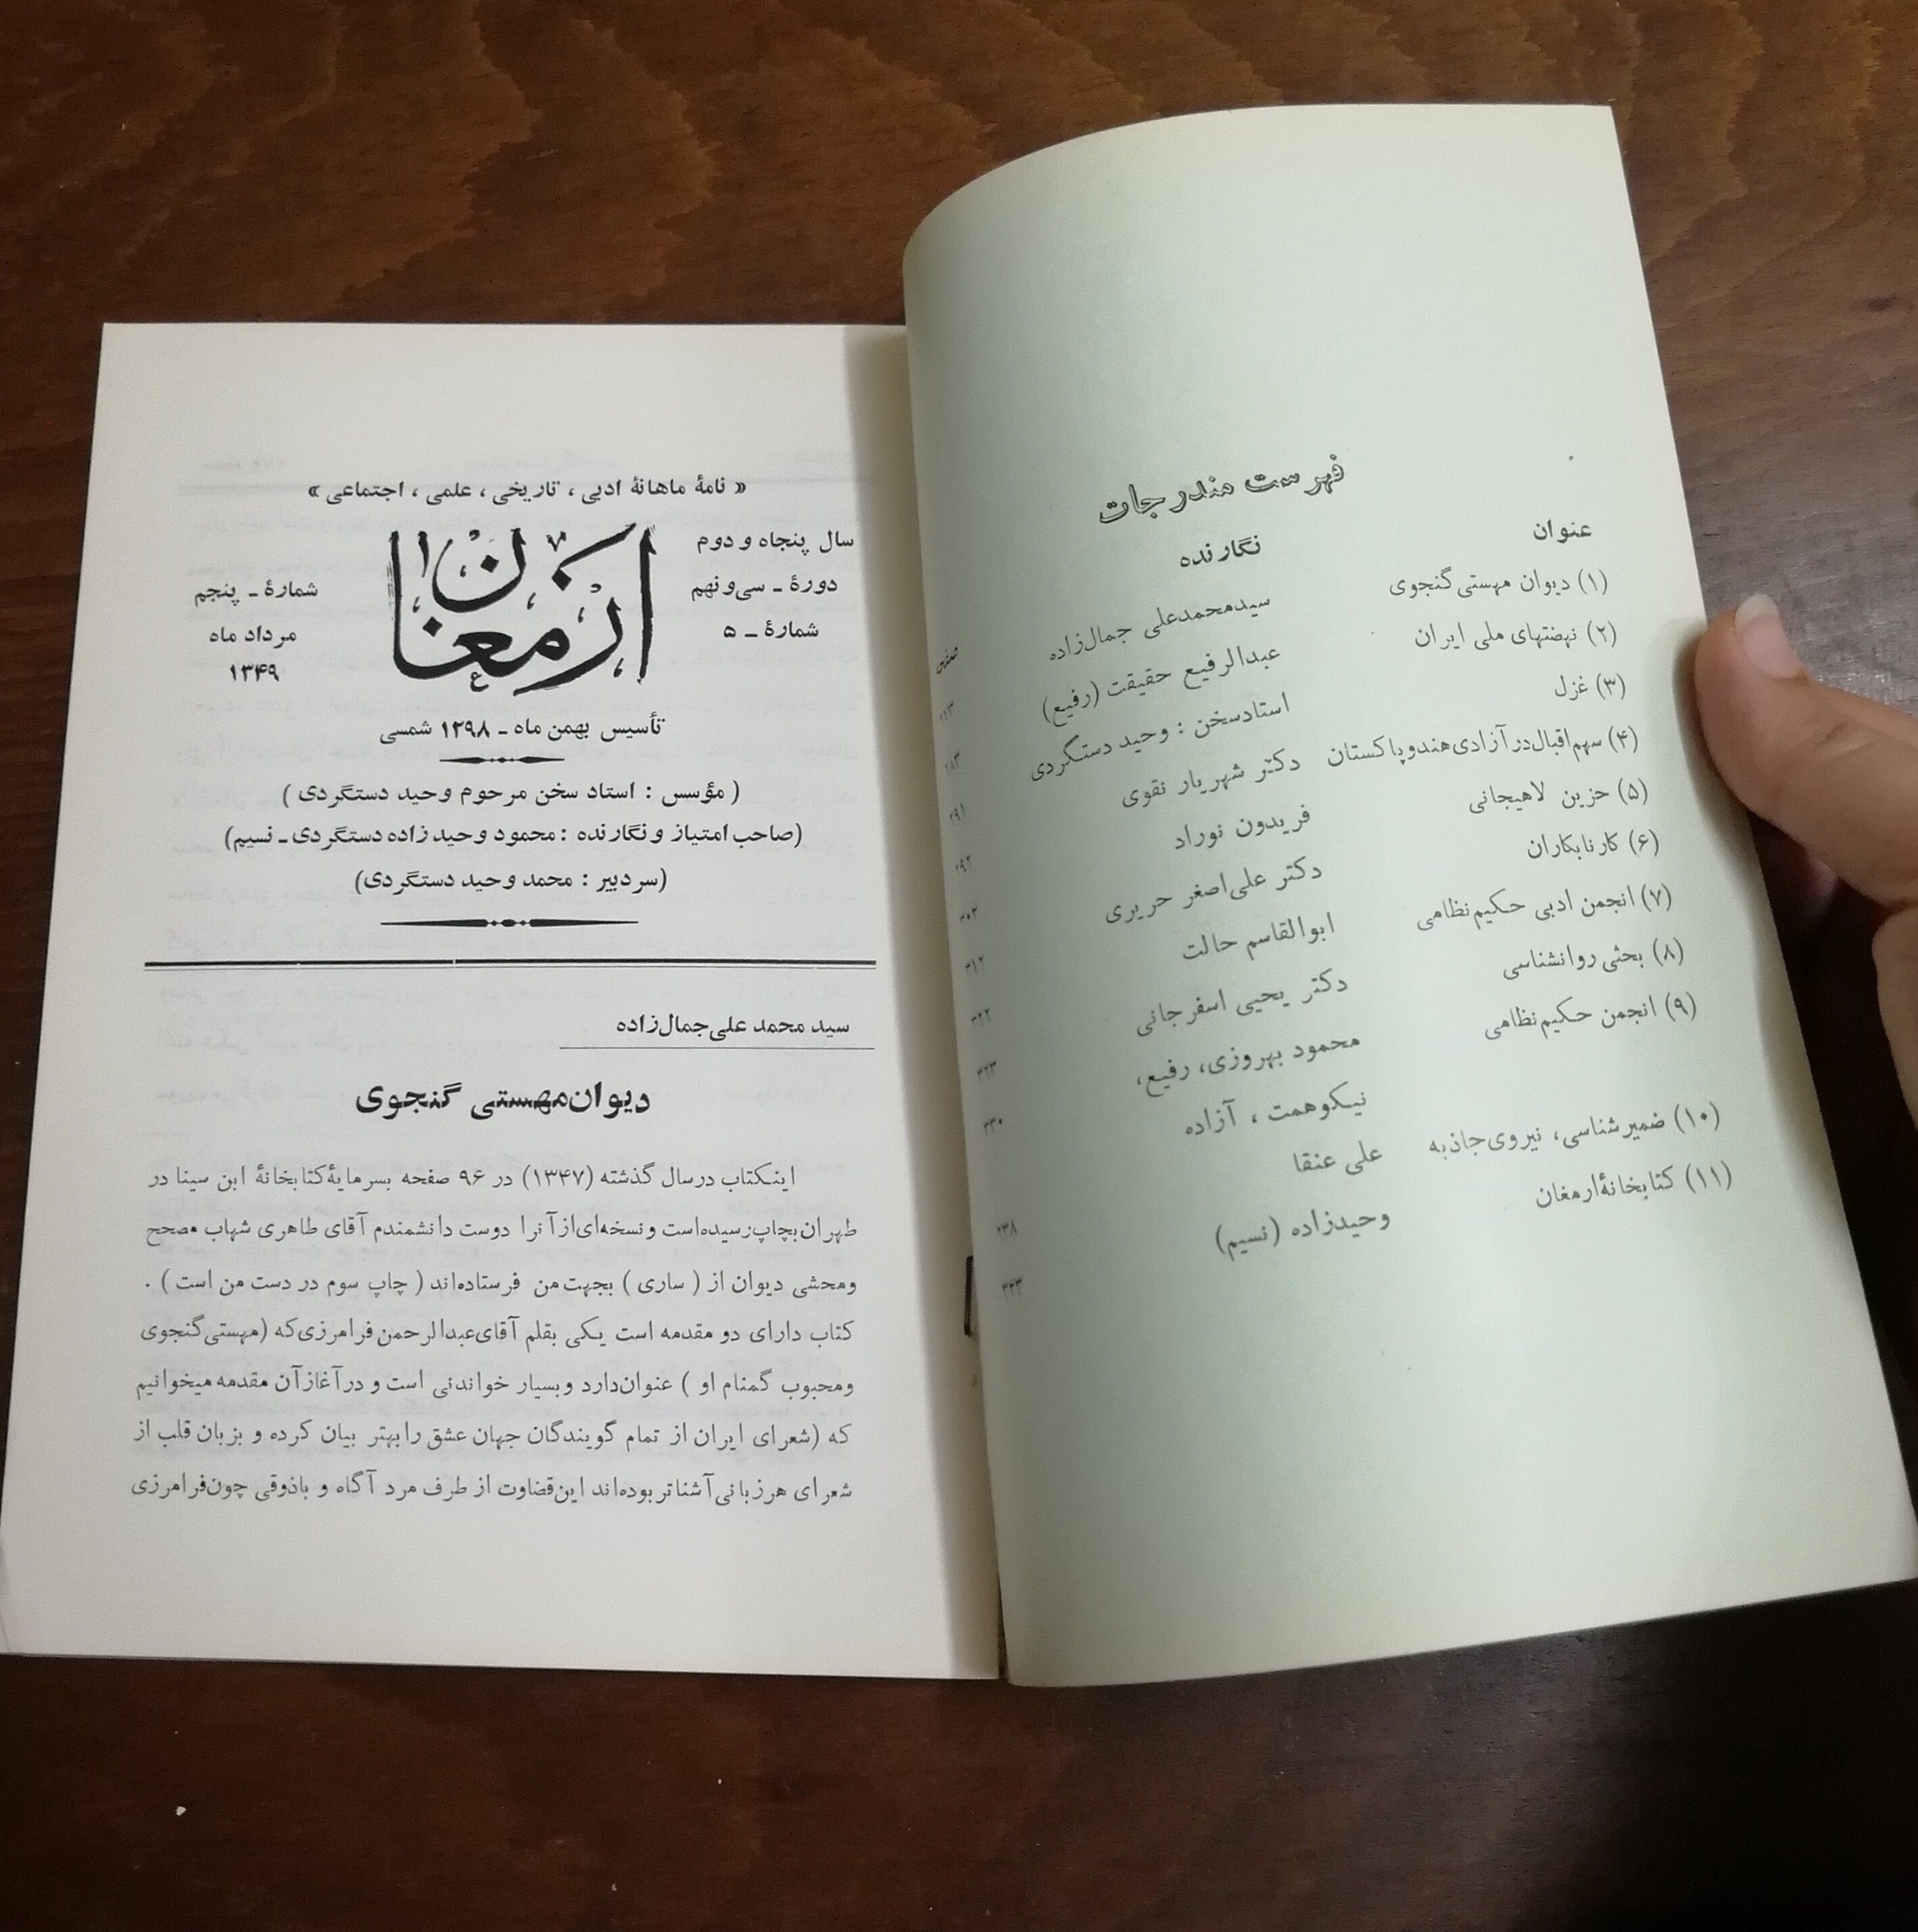 فهرست مندرجات
عنوان نگارنده صفحه
(۱) دیوان مهستی گنجوی سیدمحمدعلی جمال‌زاده
(۲) نهضتهای ملی ایران عبدالرفیع حقیقت (رفیع) ۲۸۳
(۳) غزل استادسخن : وحید دستگردی ۲۹۱
(۴) سهم اقبال در آزادی هند و پاکستان دکتر شهریار نقوی ۲۹۲
(۵) حزین لاهیجانی فریدون نوراد ۳۰۳
(۶) کار نابکاران دکتر علی‌اصغر حریری ۳۱۲
(۷) انجمن ادبی حکیم نظامی ابوالقاسم حالت ۳۲۲
(۸) بحثی روانشناسی دکتر یحیی اسفرجانی ۳۲۳
(۹) انجمن حکیم نظامی محمود بهروزی، رفیع، ۳۳۰
نیکوهمت ، آزاده
(۱۰) ضمیر شناسی، نیروی جاذبه علی عنقا
(۱۱) کتابخانهٔ ارمغان وحیدزاده (نسیم)
« نامهٔ ماهانهٔ ادبی ، تاریخی ، علمی ، اجتماعی »
سال پنجاه و دوم
دورهٔ ـ سی و نهم
شمارهٔ ـ ۵
ارمغان
شمارهٔ ـ پنجم
مرداد ماه
۱۳۴۹
تأسیس بهمن ماه ـ ۱۲۹۸ شمسی
( مؤسس : استاد سخن مرحوم وحید دستگردی )
(صاحب امتیاز و نگارنده : محمود وحید زاده دستگردی ـ نسیم)
(سردبیر : محمد وحید دستگردی)
سید محمد علی جمال‌زاده
دیوان مهستی گنجوی
اینکتاب در سال گذشته (۱۳۴۷) در ۹۶ صفحه بسرمایهٔ کتابخانهٔ ابن سینا در
طهران بچاپ رسیده است و نسخه‌ای از آنرا دوست دانشمندم آقای طاهری شهاب مصحح
ومحشی دیوان از ( ساری ) بجهت من فرستاده‌اند ( چاپ سوم در دست من است ) .
کتاب دارای دو مقدمه است یکی بقلم آقای عبدالرحمن فرامرزی که (مهستی گنجوی
ومحبوب گمنام او ) عنوان دارد و بسیار خواندنی است و در آغاز آن مقدمه میخوانیم
که (شعرای ایران از تمام گویندگان جهان عشق را بهتر بیان کرده و بزبان قلب از
شعرای هر زبانی آشناتر بوده‌اند این قضاوت از طرف مرد آگاه و باذوقی چون فرامرزی